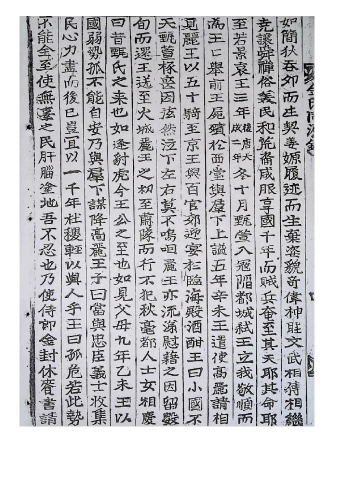 如簡狄吞卵而生契姜嫄履迹而生棄 貌奇偉神旺文武相得相繼
堯讓舜禪俗義民和荒裔咸服享國千年而賊兵奄至其天耶其命耶
至若景哀王三年後唐天成二年冬十月甄萱入寇陷都城弑王立我敬順而
高王 舉前王尸殯於西堂與羣下上謚五年辛未王遣使高麗請相
見麗王以五十騎至京王與百官郊迎宴於臨海殿酒酣王曰小國不
天甄萱椓喪因泫然泣下左右莫不嗚咽麗王亦流涕慰藉之因留數
旬而還王送至穴城麗王之初至肅隊而行不犯秋毫都人士女相慶
曰昔甄氏之來也如逢豺虎今王公之至也如見父母九年乙未王以
國弱勢孤不能自安乃與羣下謀降高麗王子曰當與忠臣義士收集
民心力盡而後已豈宜以一千年社稷輕以與人乎王曰孤危若此勢
不能全至使無辜之民肝腦塗地吾不忍也乃使侍郎金封休賫書請